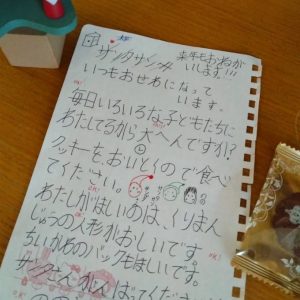 サンタサンさんへ
来年もおねがいします!!!
いつもおせわになって
います。
毎日いろいろな子どもたちに
わたしてるから大へんですか?
クッキーを、おいとくので食べ
てください。
わたしがほしいのは、くりまん
じゅうの人形がおしいです。
ちいかわのバックもほしいです。
サンタさんがんばってくださ